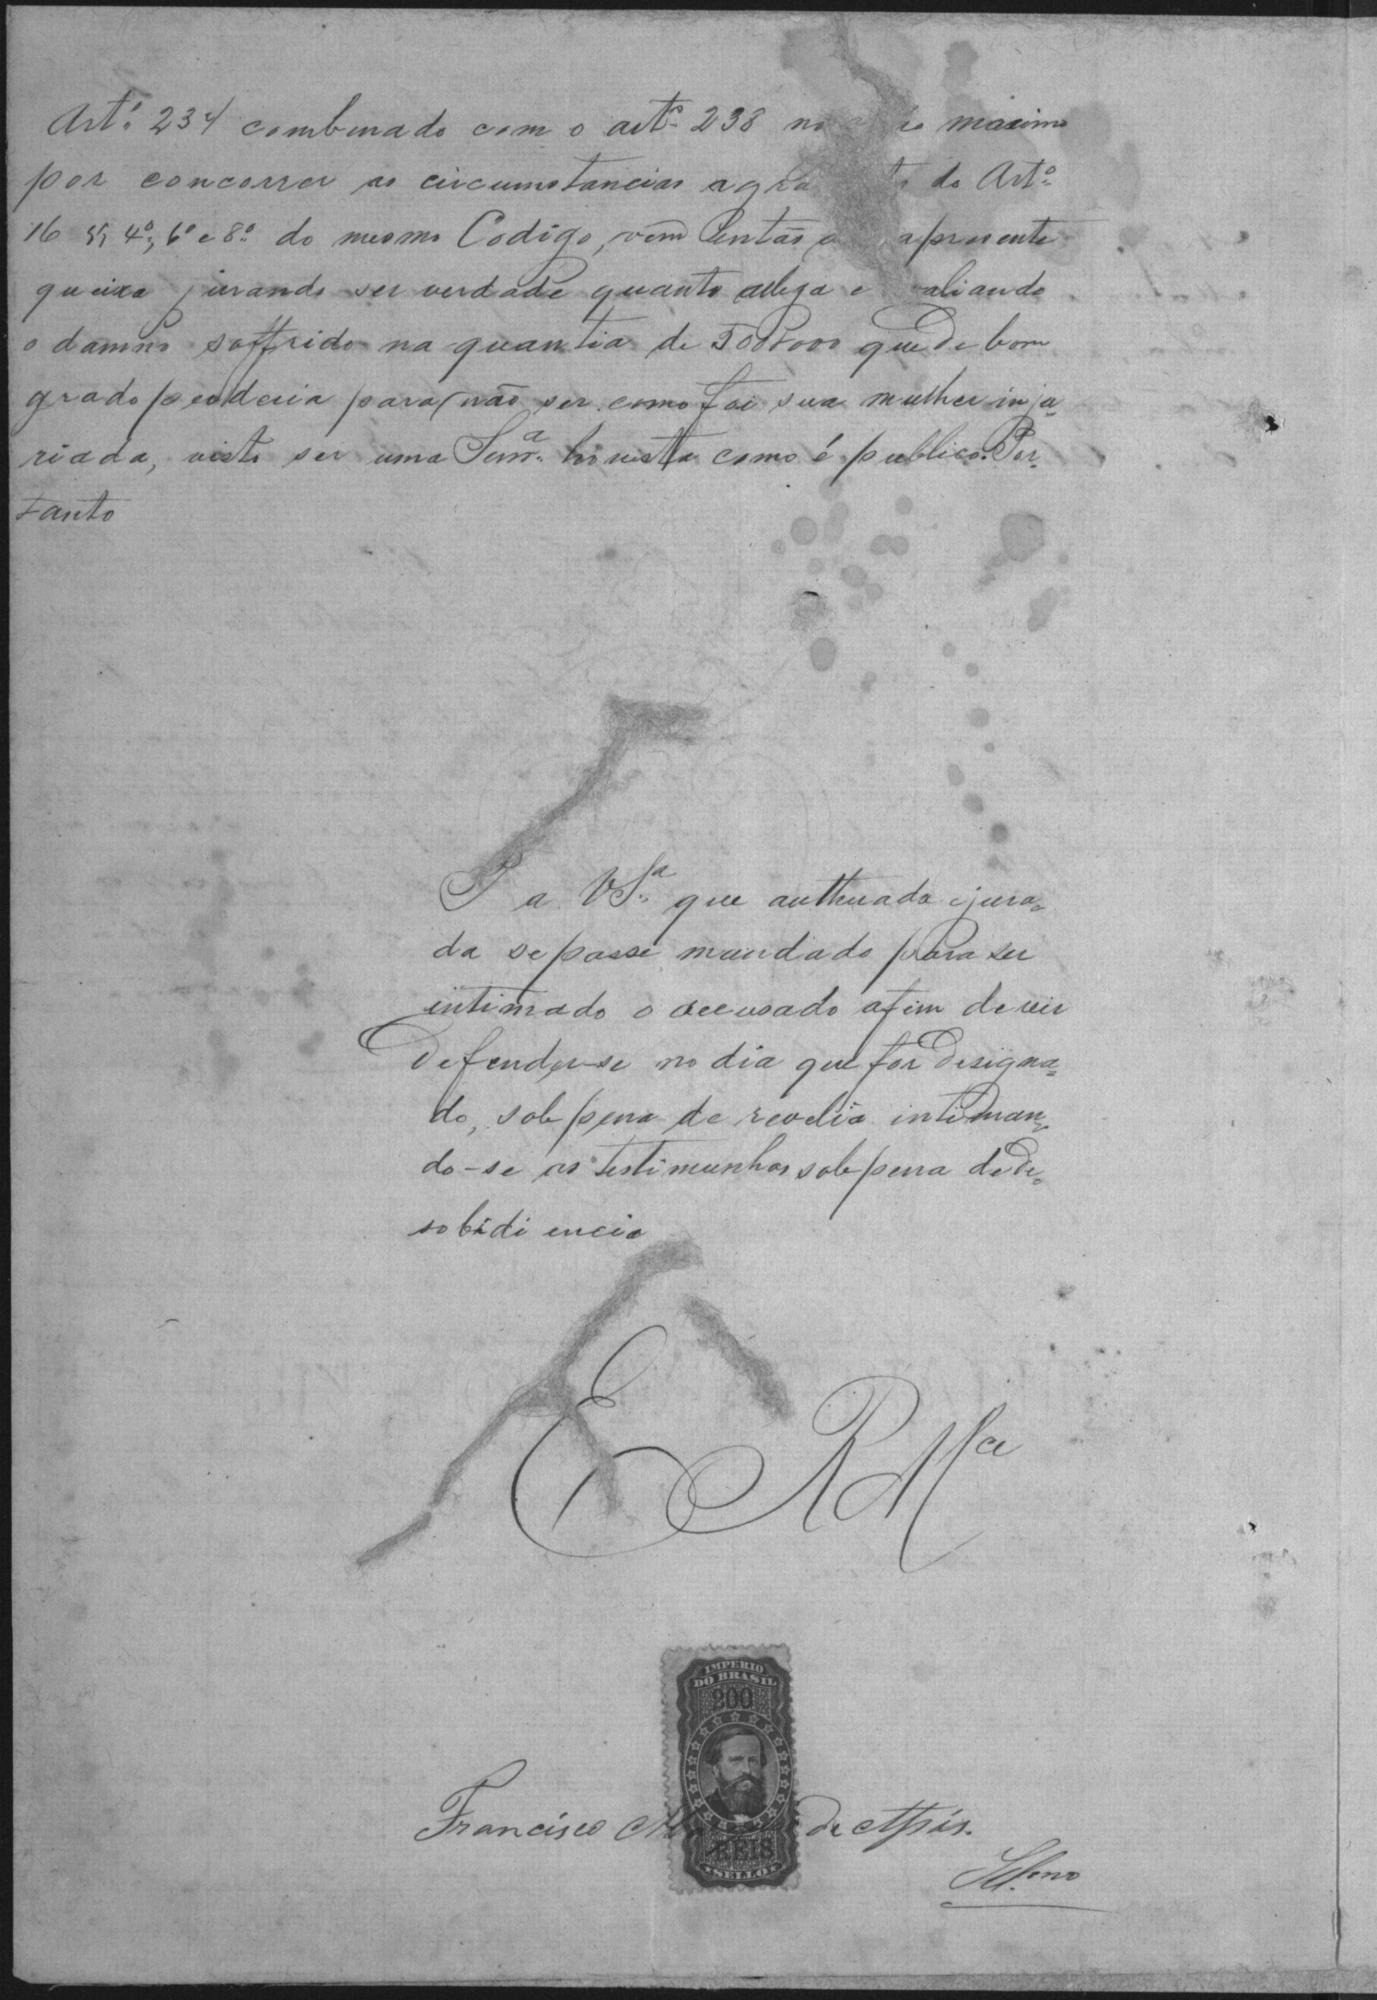 Artº 234 combinado com o artº 238 no máximo
por concorrer as circumstancias do Artº
16 §§ 4º, 6º e 8º do mesmo Codigo, vem apresente
queixa jurando ser verdade quanto allega e
o damno soffrido na quantia de 500$000 que de bom
grado perderia para não ser como foi sua mulher inju-
riada, visto ser uma Senrª honesta como é publico. Por-
tanto
P a VSª que authuada e jura-
da se passe mandado para ser
intimado o accusado afim de vir
defender-se no dia que for designa-
do, sob pena de revelia intiman-
do-se as testimunhas sob pena de de-
sobidiencia
E R Mce
IMPERIO
DO BRASIL
200
Francisco de Assis.
REIS
SELLO